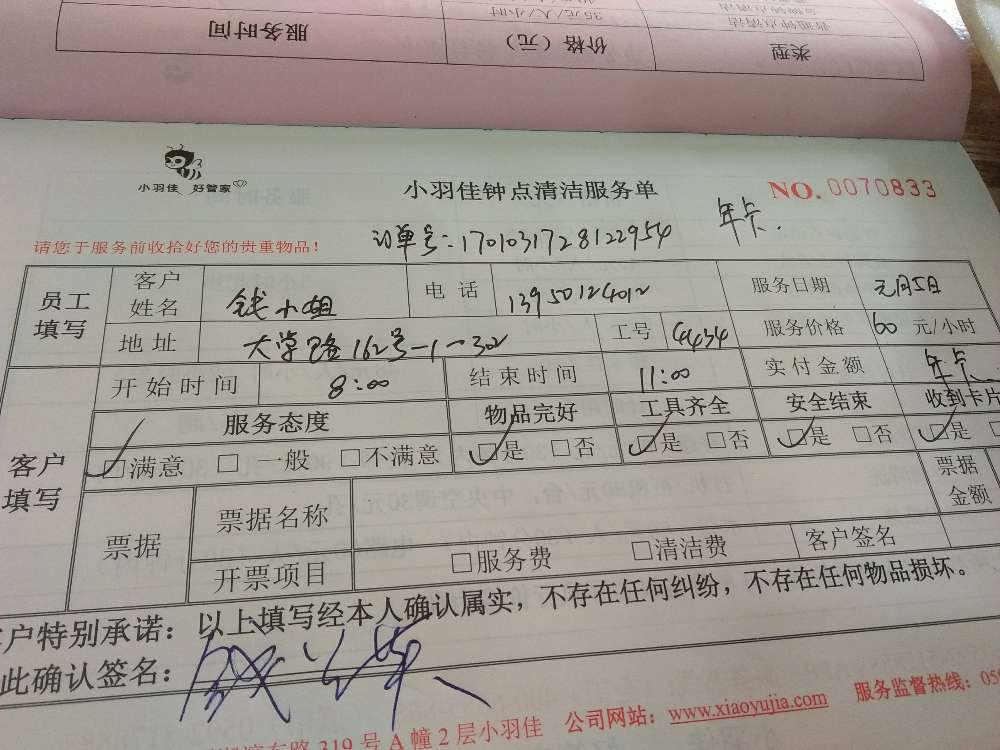 服务时间 价格（元） 类型
35元/人/小时
小羽佳 好管家
小羽佳钟点清洁服务单
NO. 0070833
请您于服务前收拾好您的贵重物品！
订单号：1701031728122954
年卡.
员工填写 客户姓名 钱小姐 电话 13950124012 服务日期 元月5日
地址 大学路162号-1-302 工号 G4434 服务价格 60 元/小时
客户填写 开始时间 8:00 结束时间 11:00 实付金额 年卡
服务态度 物品完好 工具齐全 安全结束 收到卡片
□满意 □一般 □不满意 □是 □否 □是 □否 □是 □否 □是
票据 票据名称 票据金额
开票项目 □服务费 □清洁费 客户签名
户特别承诺：以上填写经本人确认属实，不存在任何纠纷，不存在任何物品损坏。
此确认签名：
东路319号A幢2层小羽佳 公司网站：www.xiaoyujia.com 服务监督热线：059